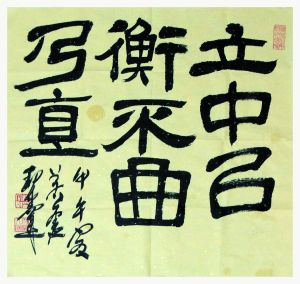 立中㠯
衡不曲
乃直
甲午夏